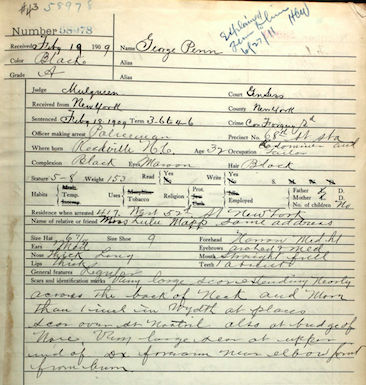 #43 58978
Number 58978
Explained
9/27/11 HBW
Received Feb 19 1909 Name George Penn
Color Black Alias
Grade A Alias
Judge Mulqueen Court Gn Sess
Received from New York County New York
Sentenced Feb 18 1909 Term 3-6 to 4-6 Crime Forgery 2d
Officer making arrest Policeman Precinct No. 68th St sta
Where born Reedville N.C. Age 32 Occupation Sailor
Complexion Black Eyes Maroon Hair Black
Stature 5-8 Weight 153 Read Yes No Write Yes No
Habits Mod. Temp. Int. Uses Morphine Tobacco Religion Prot. Employed Unemployed Father D. Mother D. No. of children No
Residence when arrested 417 West 52nd St New York
Name of relative or friend Mrs Lulu Mapp Same address
Size Hat 6 7/8 Size Shoe 9 Forehead Narrow Med ht
Ears Eyebrows Arched Med
Nose Thick Long Mouth Straight full
Lips Thick Teeth
General features Regular
Scars and identification marks Very large scar extending nearly
across the back of Neck and more
than 1 inch in Wydth at places
Scar over Nostril also at bridge of
Nose. Very large scar at upper
end of Dx forearm near elbow front
from burn